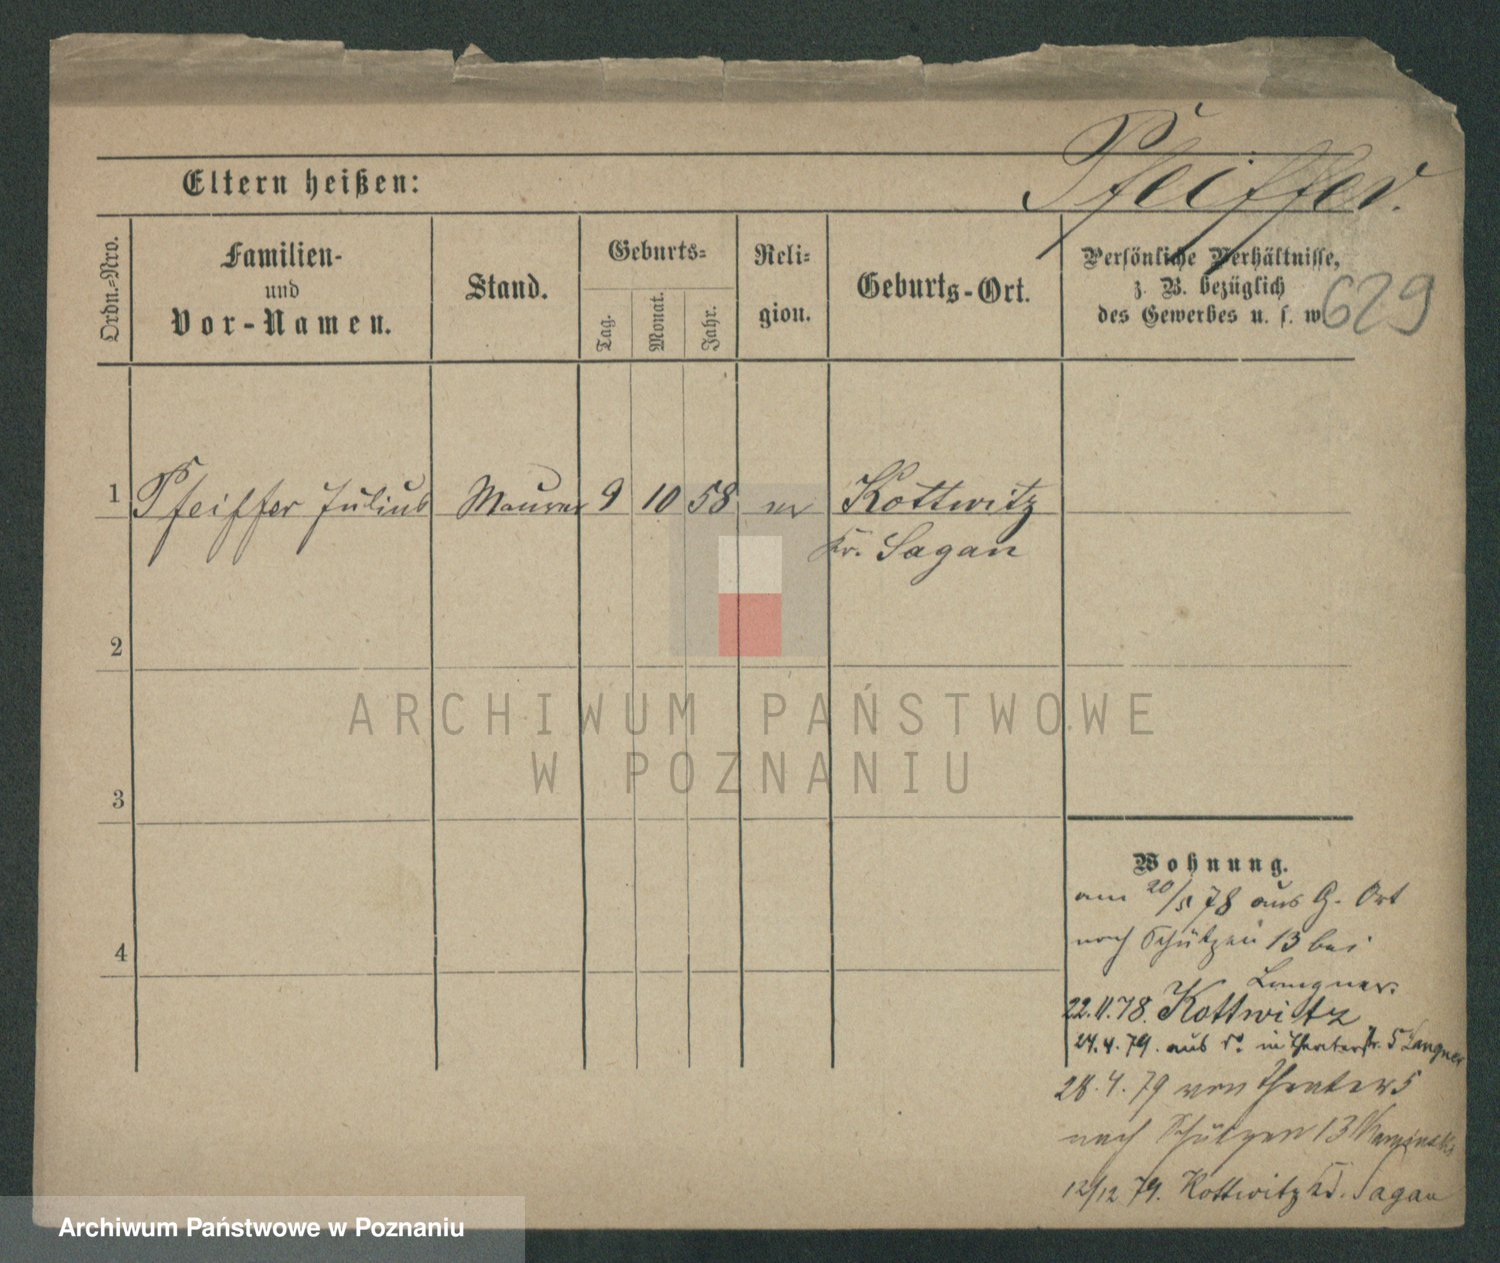 Pfeiffer.
Eltern heißen:
Ordn.-Nro.
Familien-
und
Vor-Namen.
Stand.
Geburts-
Tag.
Monat.
Jahr.
Reli-
gion.
Geburts-Ort.
Persönliche Verhältnisse,
z. B. bezüglich
des Gewerbes u. s. w.
629
1 Pfeiffer Julius Maurer 9 10 58 Kottwitz
Kr. Sagan
2
3
4
ARCHIWUM PAŃSTWOWE
W POZNANIU
Wohnung.
am 20/5 78 aus G. Ort
nach Schützen 13 bei
Langner.
22.11.78. Kottwitz
24.4.79. aus in Theaterstr. 5 Langner
28.4.79 von Theater 5
nach Schützen 13
12/12 79. Kottwitz Kr. Sagan
Archiwum Państwowe w Poznaniu